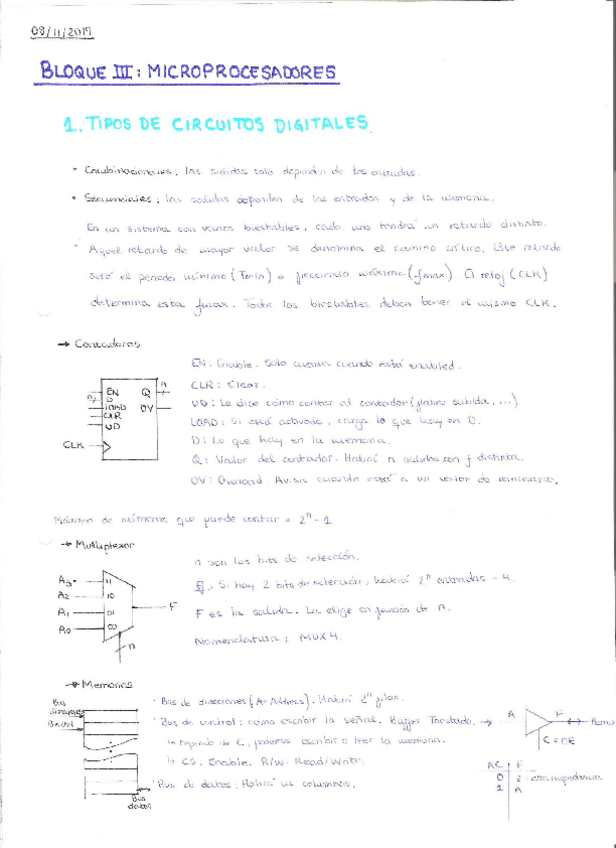 08/11/2017
BLOQUE III: MICROPROCESADORES
1. TIPOS DE CIRCUITOS DIGITALES.
• Combinacionales: las salidas solo dependen de las entradas.
• Secuenciales: las salidas dependen de las entradas y de la memoria.
En un sistema con varios biestables, cada uno tendrá un retardo distinto.
Aquel retardo de mayor valor se denomina el camino crítico. Este retardo
será el periodo mínimo (Tmin) o frecuencia máxima (fmax). El reloj (CLK)
determina esta fmax. Todos los biestables deben tener el mismo CLK.
→ Contadores
EN: Enable. Solo cuenta cuando está enabled.
CLR: Clear.
UD: Le dice cómo contar al contador (flanco subida, ...)
LOAD: Si está activado, carga lo que hay en D.
D: Lo que hay en la memoria.
Q: Valor del contador. Habrá n salidas con f distinta.
OV: Overload. Avisa cuando está a un valor de reiniciarse.
EN Q
D
LOAD OV
CLR
UD
CLK
Máximo de números que puede contar = 2^n - 1
→ Multiplexor
n son los bits de selección.
Ej: Si hay 2 bits de selección, habrá 2^n entradas = 4.
F es la salida. La elige en función de n.
Nomenclatura: MUX 4.
A3 11
A2 10
A1 01
A0 00
F
n
→ Memorias
• Bus de direcciones (A= Address). Habrá 2^n filas.
• Bus de control: como escribir la señal. Buffer Triestado. →
↳ Depende de C, podemos escribir o leer la memoria.
↳ CS: Enable. R/W: Read/Write.
• Bus de datos: Habrá columnas.
Bus
Bus
datos
A F
C = OE
AC F
0 Z → alta impedancia
1 A